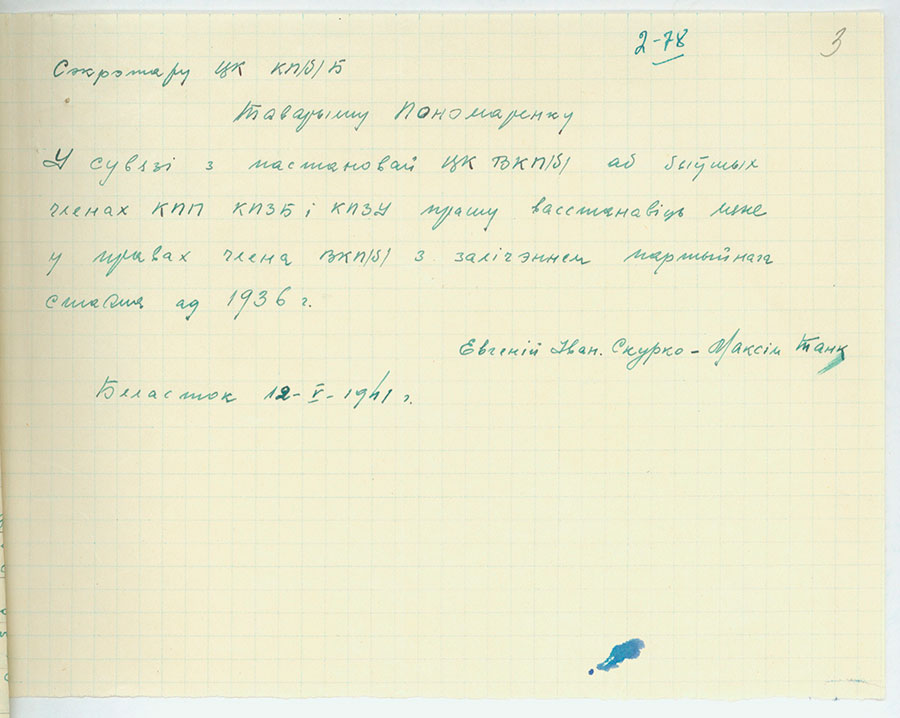 2-78
3
Сэкрэтару ЦК КП/б/Б
Таварышу Пономаренку
У сувязі з пастановай ЦК ВКП/б/ аб быўшых
членах КПП КПЗБ і КПЗУ прашу васстанавіць мяне
у правах члена ВКП/б/ з залічэннем партыйнага
стажа ад 1936 г.
Евгеній Іван. Скурко - Максім Танк
Беласток 12-V-1941 г.